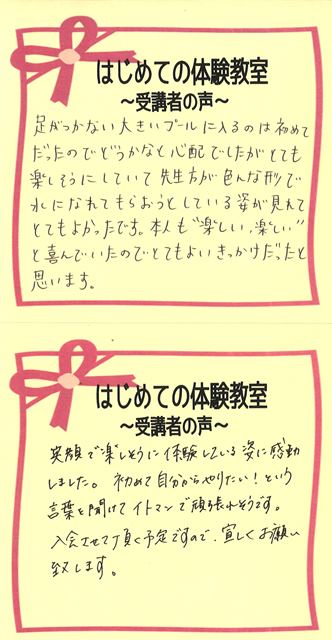 はじめての体験教室
～受講者の声～
足がつかない大きいプールに入るのは初めて
だったのでどうかなと心配でしたがとても
楽しそうにしていて先生方が色んな形で
水になれてもらおうとしている姿が見れて
とてもよかったです。本人も"楽しい,楽しい"
と喜んでいたのでとてもよいきっかけだったと
思います。
はじめての体験教室
～受講者の声～
笑顔で楽しそうに体験している姿に感動
しました。初めて自分からやりたい！という
言葉を聞けてイトマンで頑張れそうです。
入会させて頂く予定ですので、宜しくお願い
致します。